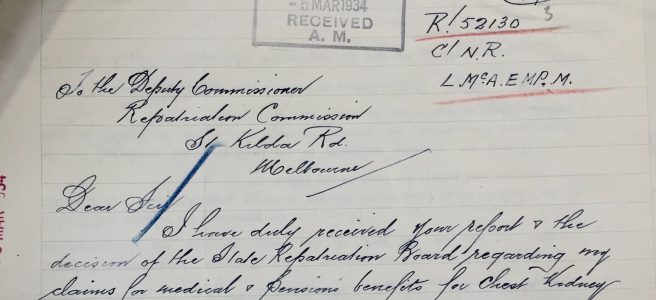 - 5 MAR 1934
RECEIVED
A. M.
R/52130
3
C/ N.R.
L. McA. E MP. M.
To the Deputy Commissioner
Repatriation Commission
St Kilda Rd.
Melbourne
Dear Sir
I have duly received your report & the
decision of the State Repatriation Board regarding my
claims for medical & pensions benefits for Chest Kidney
MAR 934